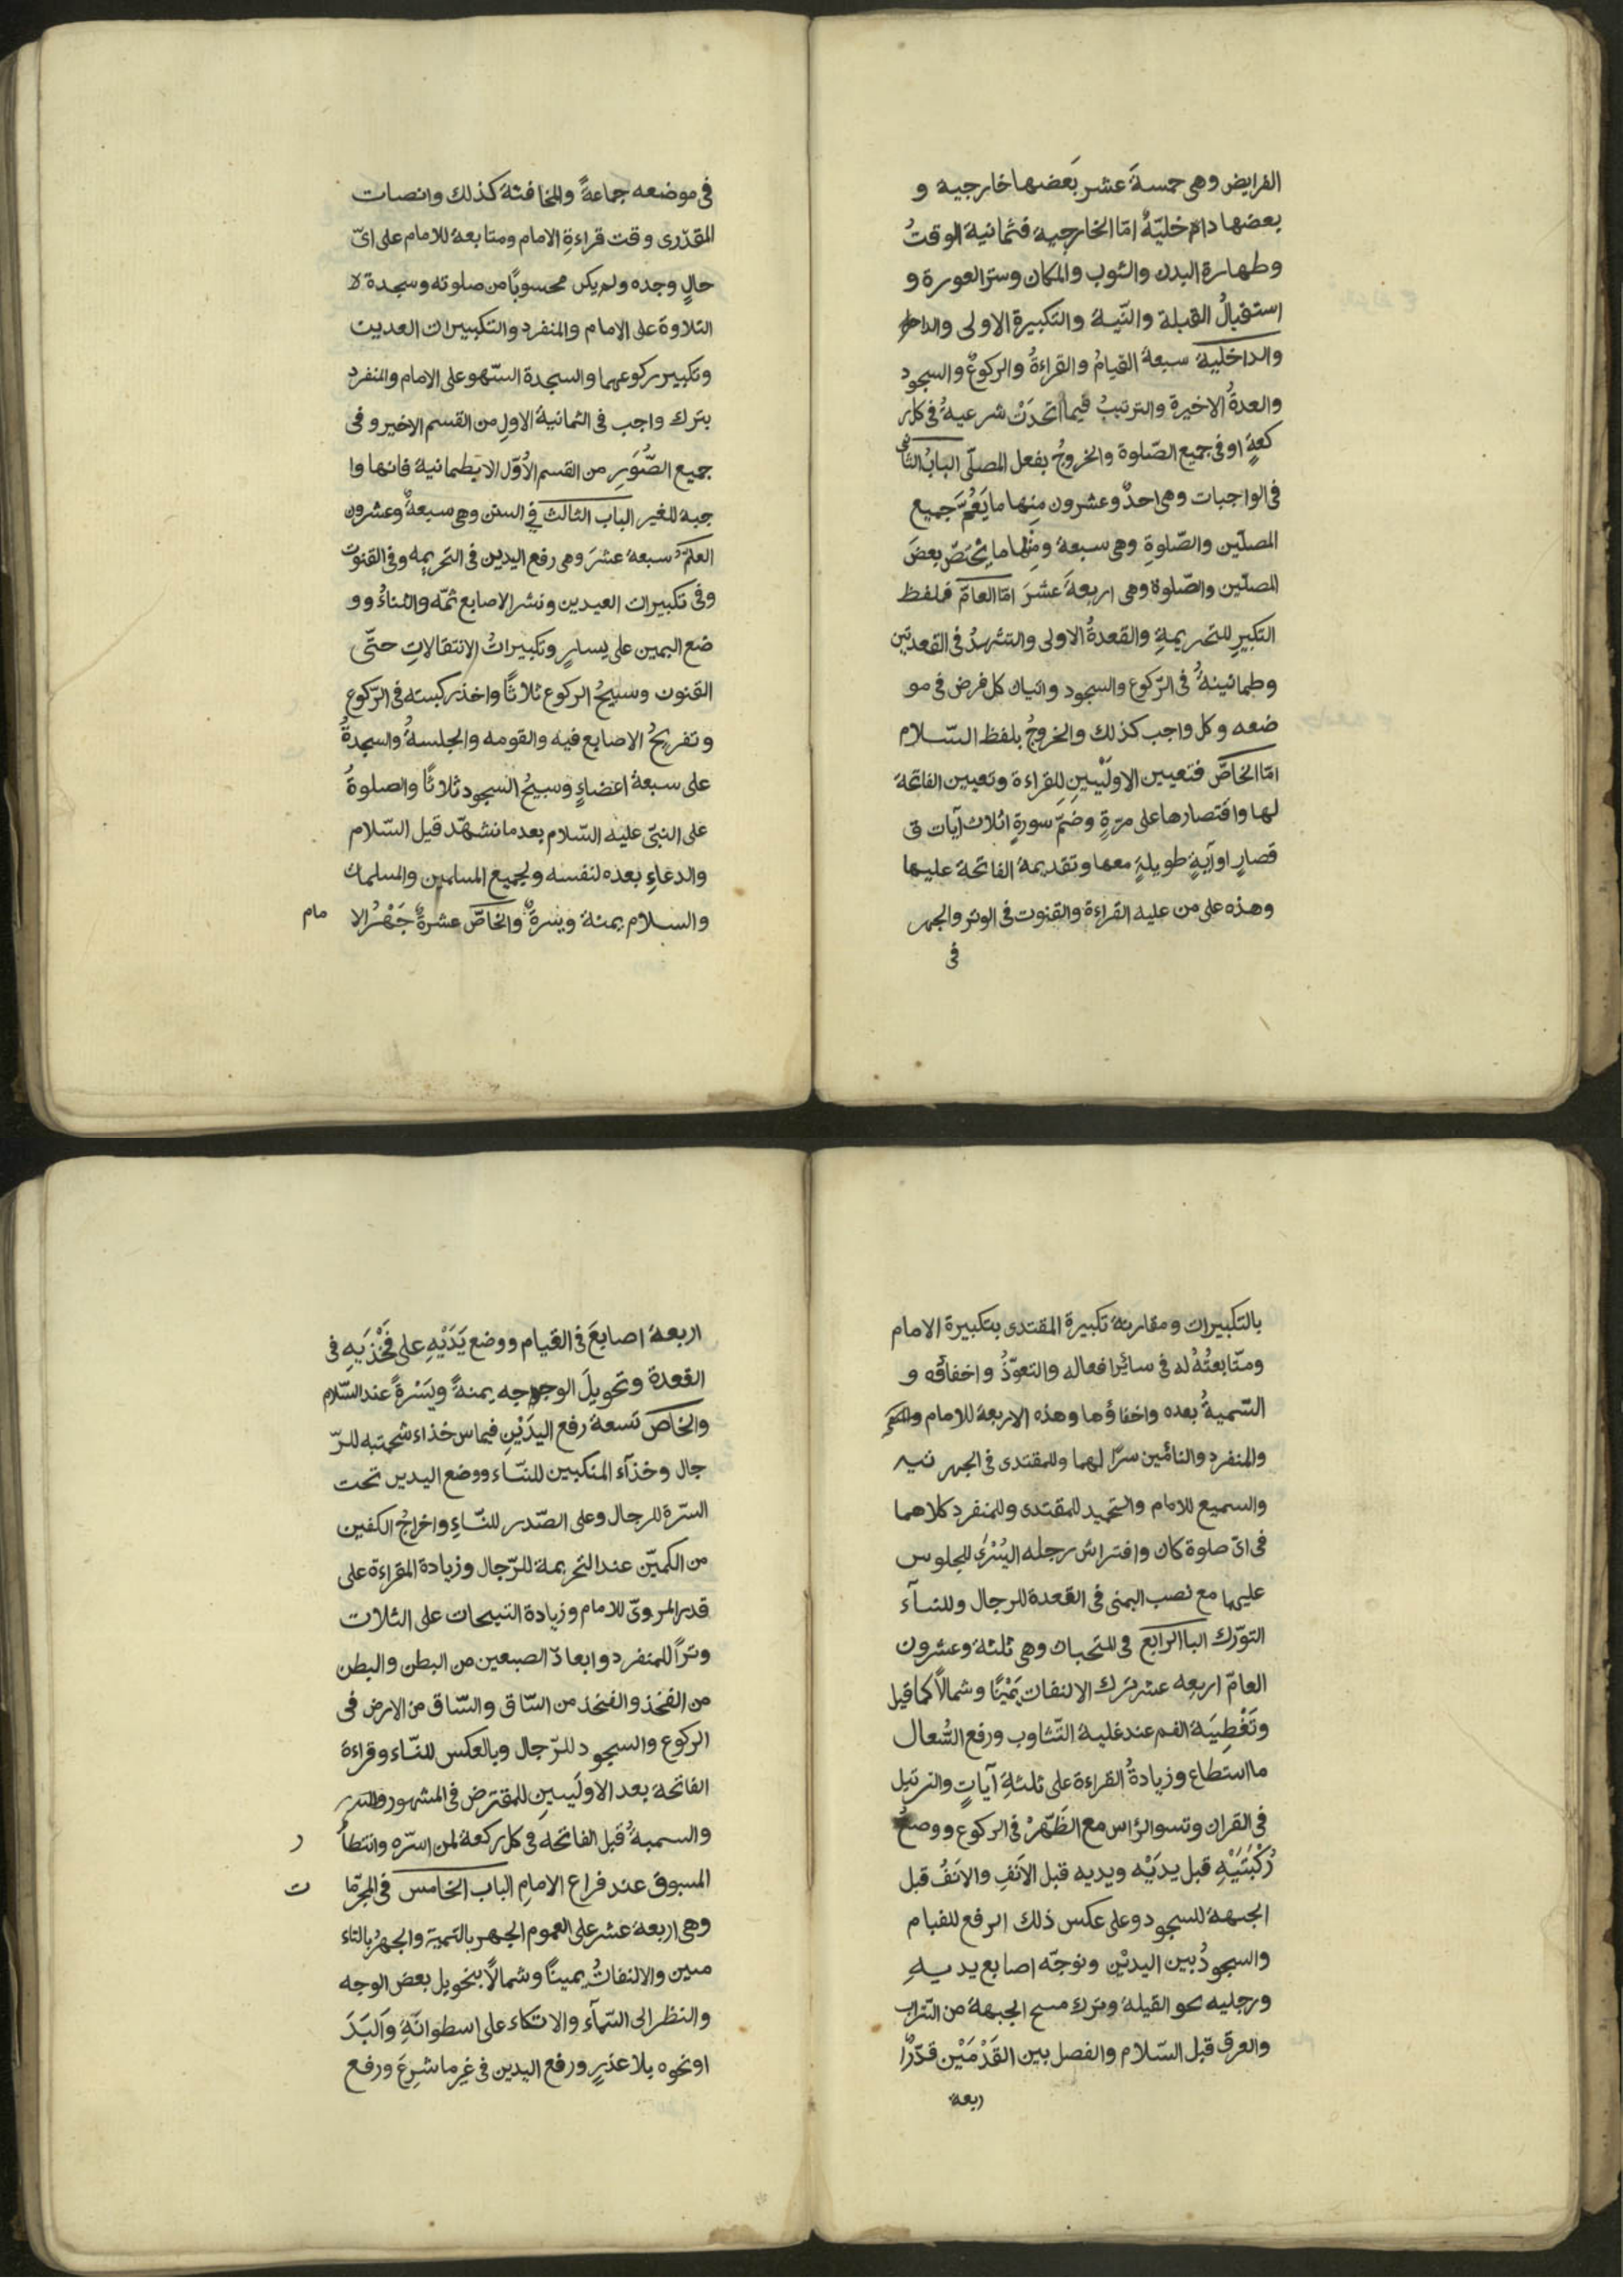 الفرايض وهى خمسةَ عشر بَعضها خارجية و
بعضها داخليّةٌ امّا الخارجية فثمانية الوقتُ
وطهارة البدن والثوب والمكان وستر العورة و
استقبالُ القبلة والنّية والتكبيرة الاولى
والداخلية سبعة القيامُ والقراءةُ والركوعُ والسجود
والعدةُ الاخيرة والترتيبُ فيما اتحدَتْ شرعيةُ فى كل ر
كعةٍ او فى جميع الصّلوة والخروجُ بفعل المصلّى البابُ الثانى
فى الواجبات وهى احدٌ وعشرون مِنها ما يَعُمَّ جَميع
المصلّين والصّلوةِ وهى سبعة ومِنْها ما يختصّ بعضَ
المصلّين والصّلوة وهى اربعةَ عشرَ امّا العامّ فلفظ
التكبيرِ للتحريمةِ والقعدةُ الاولى والتشهدُ فى القعدتين
وطمانينةُ فى الرّكوع والسجود واتيان كل فرض فى مو
ضعه وكل واجب كذلك والخروجُ بلفظ السّلام
امّا الخاصّ فتعيين الاولَيْيينِ للقراءة وتعيين الفاتحة
لها واقتصارها على مرّةٍ وضمّ سورةٍ اثلاث آيات ق
قصارٍ او آيةٍ طويلةٍ معها وتقديمة الفاتحة عليها
وهذه على من عليه القراءة والقنوت فى الوتر والجهر
فى
فى موضعه جماعةً والمخافتة كذلك وانصات
المقدّرى وقت قراءةِ الامام ومتابعة للامام على اىّ
حالٍ وجده ولم يكن محسوبًا من صلوته وسجدة لا
التلاوة على الامام والمنفرد والتكبيرات العديث
وتكبير ركوعهما والسجدة السّهو على الامام والمنفرد
بترك واجب فى الثمانية الاولِ من القسم الاخير وفى
جميع الصُّوَرِ من القسم الاُوّل الا يطمانية فانها وا
جبة للغير الباب الثالث فى السنن وهى سبعةٌ وعشرون
العامّ سبعة عشرَ وهى رفع اليدين فى التحريمه وفى القنوت
وفى تكبيرات العيدين ونشر الاصابع ثمّه والثناءُ وو
ضع اليمين على يسارٍ وتكبيراتُ الانتقالاتِ حتّى
القنون وسبيحُ الركوع ثلاثًا واخذ ركبسته فى الرّكوع
وتفريجُ الاصابع فيه والقومه والجلسةُ والسجدةُ
على سبعة اعضاءٍ وسبيحُ السجود ثلاثًا والصلوةُ
على النبىّ عليه السّلام بعد ما نشهّد قيل السّلام
والدعاءِ بعده لنفسه ولجميع المسلمين والمسلمات
والسلام يمنة ويسرةً والخاصّ عشرةٌ جَهْرُ الا مام
بالتكبيرات ومقارنة تكبيرة المقتدى بتكبيرة الامام
ومتّابعتُهُ له فى سائر افعاله والتعوّذُ واخفاؤه و
التسميةُ بعده واخفاؤها وهذه الاربعة للامام
والمنفرد والتأمّين سرًّا لهما وللمقتدى فى الجهر تيه
والسميع للامام والتحميد للمقتدى وللمنفرد كلاهما
فى اىّ صلوة كان وافتراش رجله اليُسْرىٰ للجلوس
عليها مع نصب اليمنى فى القعدة للرجال وللنسآء
التورّك البا الرابع فى المتحبات وهى ثلثة وعشرون
العامّ اربعه عشر ترك الالنفات يَمْيْنًا وشمالاً كما قيل
وتَغْطِيَة الفم عند غلبة التّثاوب ورفع السُّعال
ما استطاع وزيادةُ القراءة على ثلثةِ آياتٍ والترتيل
فى القران وتسو الرّاس مع الظّهْرْ فى الركوع ووضعُ
رُكْبَتَيْهِ قبل يدَيْه ويديه قبل الاَنفِ والاَنَفُ قبل
الجبهة للسجود وعلى عكس ذلك الرفع للقيام
والسجودُ بين اليديْن ونوجّه اصابع يديهِ
ورجليه نحو القيلة وترك مسح الجبهة من التراب
والعرق قبل السّلام والفصل بين القَدْمَيْن قدّرًا
ربعة
اربعة اصابعَ فى القيام ووضع يَدَيْهِ على فَخْذَيهِ فى
القعدة وتحويلَ الوجه يمنةً ويَسْرَةً عند السّلام
والخاصّ تسعة رفع اليدَيْنِ فيماس خذاء شحمتبه للرّ
جال وخذآء المنكبين للنسّاء ووضع اليدين تحت
السرّة للرجال وعلى الصّدر للنّساءِ واخراجُ الكفين
من الكميّن عند التحريمة للرّجال وزيادة القراءة على
قدر المروىّ للامام وزيادة التبيحات على الثلاث
وترًا للمنفرد وابعادّ الصبعين من البطن والبطن
من الفخذ والفخذ من السّاق والسّاق من الارض فى
الركوع والسجود للرّجال وبالعكس للنّساء وقراءة
الفاتحة بعد الاولَييينِ للمقترض فى المشهور
والسمبةُ قبل الفاتحه فى كل ركعة لمن اسرّه وانتطأ ر
المسبوق عند فراع الامامِ الباب الخامس فى المجرّما ت
وهى اربعة عشر على العموم الجهر بالتسمية والجهرُ بالتاء
مىين والالنفاتُ يمينًا وشمالاً بنحويل بعض الوجه
والنظر الى السّمآء والاتكاء على اسطوانّةِ وَالَيَدَ
اونحوه بلا عذرٍ ورفع اليدين فى غير ما شرِعَ ورفع